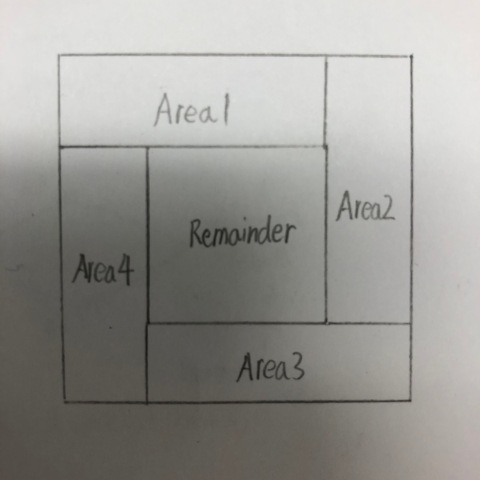 Area1
Area2
Remainder
Area4
Area3